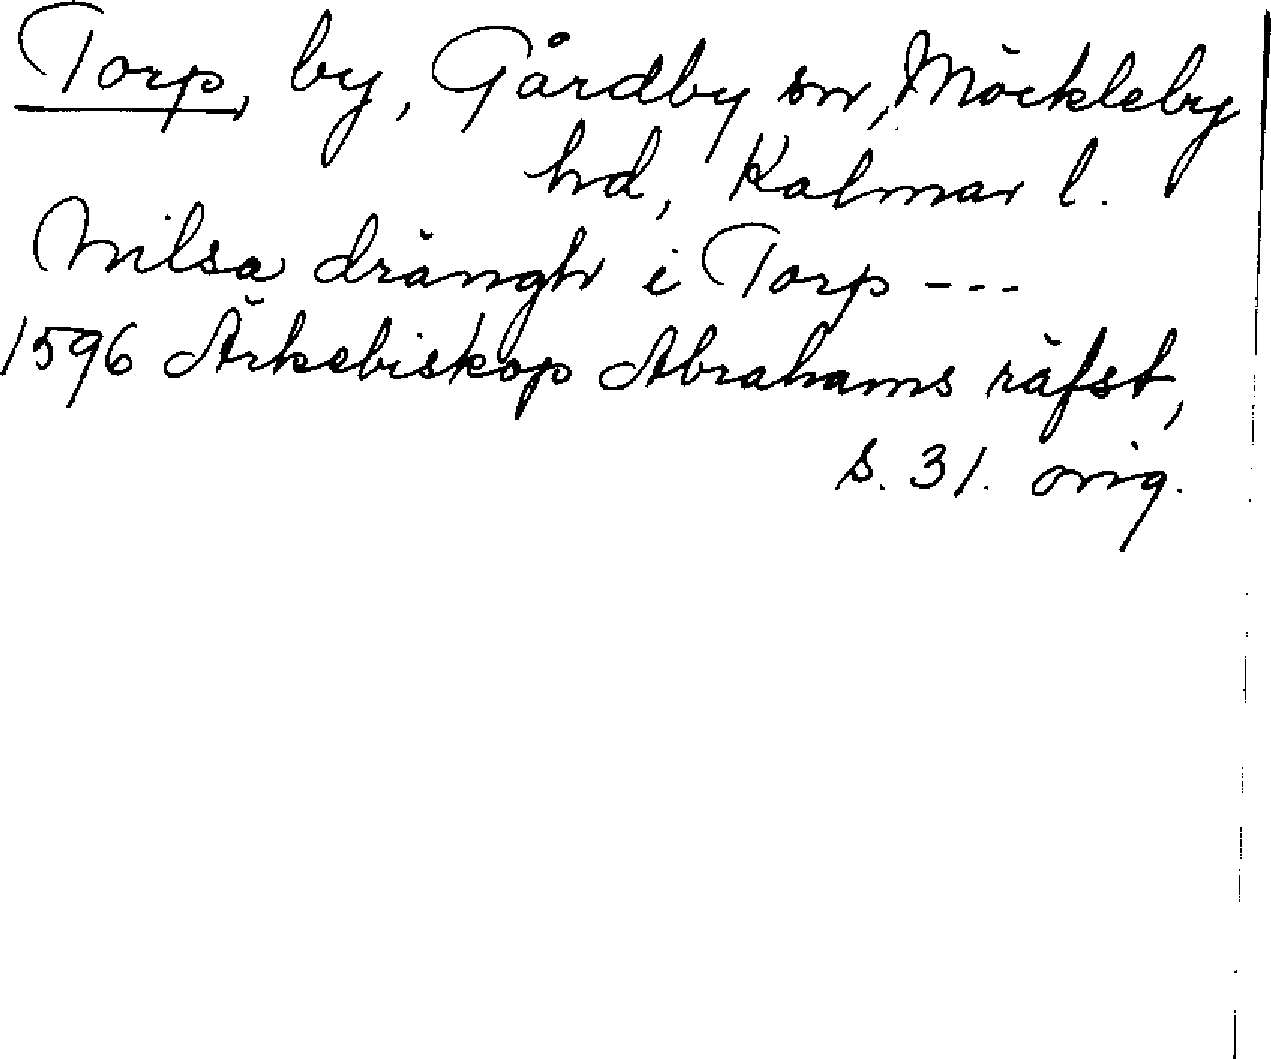 Torp, by, Gårdby sn, Möckleby
hd, Kalmar l.
Nilsa drängh i Torp ---
1596 Ärkebiskop Abrahams räfst,
s. 31. orig.